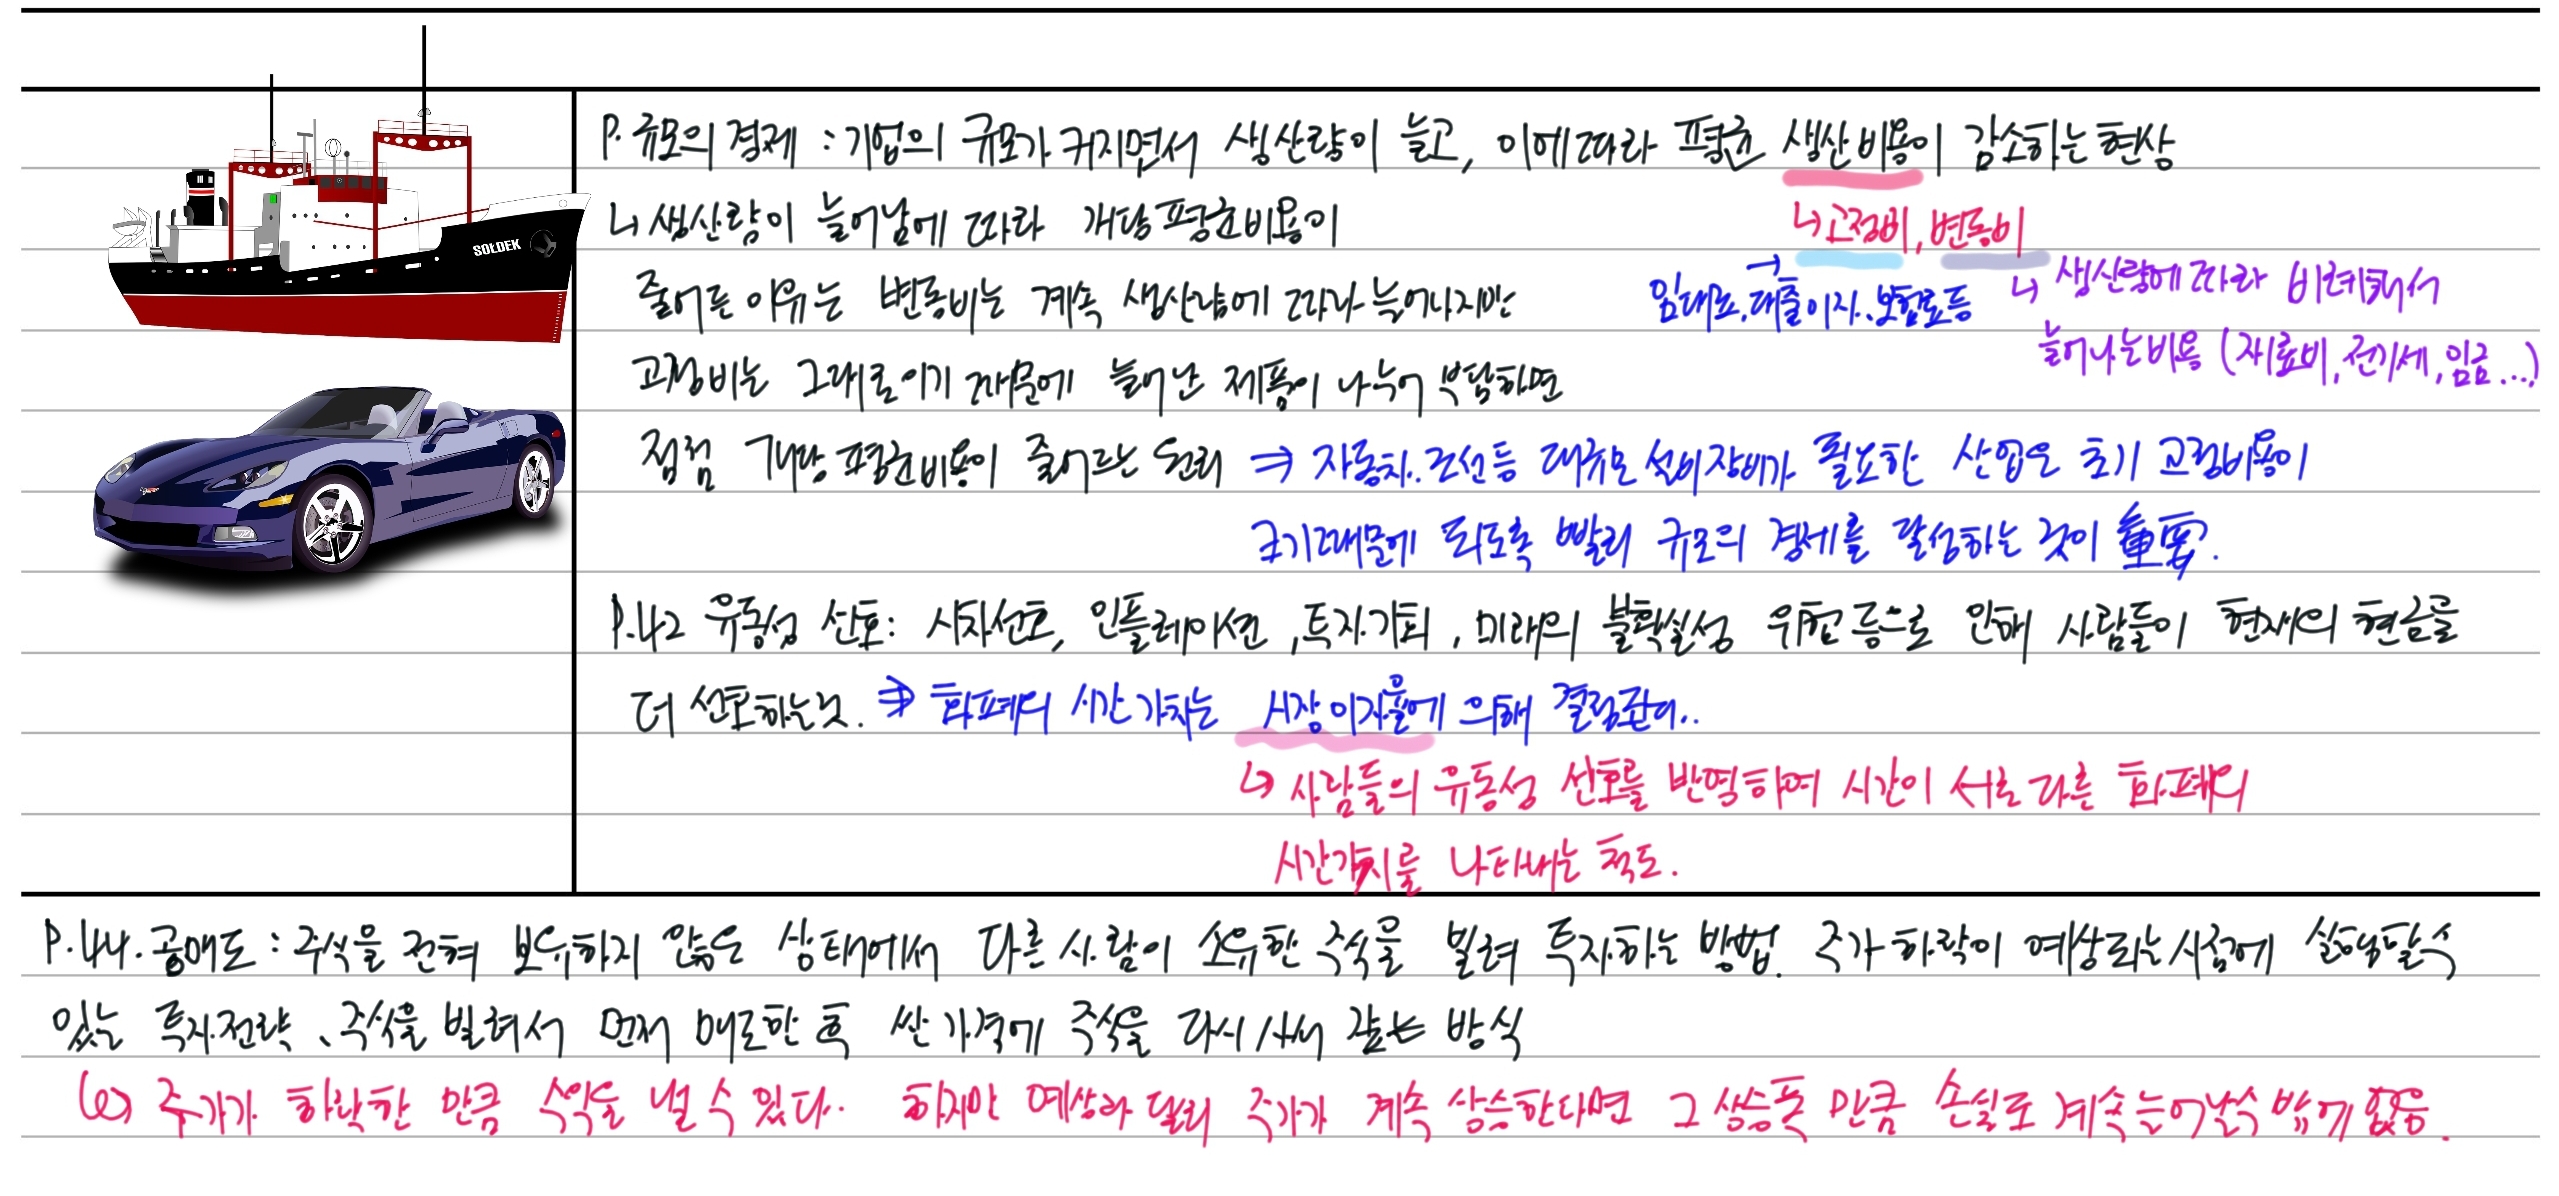 SOLDEK
P. 규모의 경제 : 기업의 규모가 커지면서 생산량이 늘고, 이에따라 평균 생산비용이 감소하는 현상
↳ 생산량이 늘어남에 따라 개당 평균비용이
↳고정비, 변동비
줄어드는 이유는 변동비는 계속 생산량에 따라 늘어나지만
→ 임대료, 대출이자, 보험료 등
↳ 생산량에 따라 비례해서
늘어나는 비용 (재료비, 전기세, 임금...)
고정비는 그대로이기 때문에 늘어난 제품이 나누어 부담하면
점점 개당 평균비용이 줄어드는 원리 ⇒ 자동차.조선등 대규모 설비장비가 필요한 산업은 초기 고정비용이
크기때문에 되도록 빨리 규모의 경제를 달성하는 것이 重要.
P.42 유동성 선호: 시차선호, 인플레이션, 투자기회, 미래의 불확실성 위험 등으로 인해 사람들이 현재의 현금을
더 선호하는것. ⇒ 화폐의 시간가치는 시장이자율에 의해 결정된다..
↳ 사람들의 유동성 선호를 반영하여 시간이 서로 다른 화폐의
시간가치를 나타내는 척도.
P.44. 공매도 : 주식을 전혀 보유하지 않은 상태에서 다른 사람이 소유한 주식을 빌려 투자하는 방법. 주가 하락이 예상되는 시점에 실행할 수
있는 투자전략, 주식을 빌려서 먼저 매도한 후 싼 가격에 주식을 다시 사서 갚는 방식
↳ 주가가 하락한 만큼 수익을 낼 수 있다. 하지만 예상과 달리 주가가 계속 상승한다면 그 상승폭 만큼 손실도 계속 늘어날수 밖에 없음.